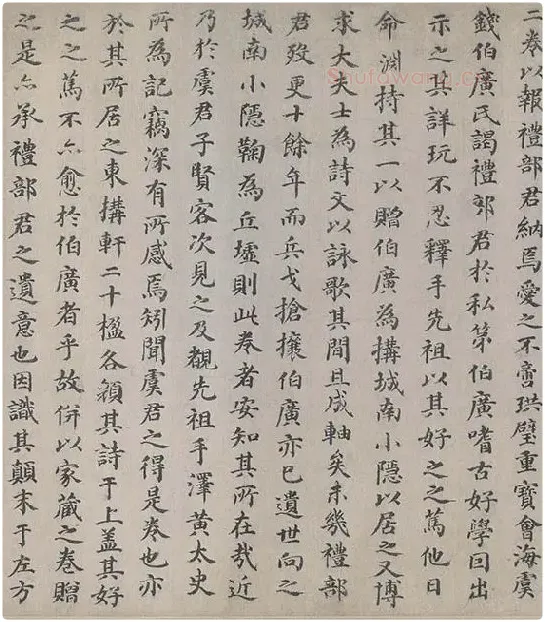 二卷以報禮部君納焉愛之不啻珙璧重寶會海虞
錢伯廣氏謁禮部君於私第伯廣嗜古好學因出
示之其詳玩不忍釋手先祖以其好之之篤他日
命淵持其一以贈伯廣為搆城南小隱以居之又博
求大夫士為詩文以詠歌其間且成軸矣未幾禮部
君歿更十餘年而兵戈搶攘伯廣亦已遺世向之
城南小隱鞠為丘墟則此卷者安知其所在哉近
乃於虞君子賢客次見之及覩先祖手澤黃太史
所為記竊深有所感焉矧聞虞君之得是卷也亦
於其所居之東搆軒二十楹各額其詩于上蓋其好
之之篤不亦愈於伯廣者乎故併以家藏之卷贈
之是亦承禮部君之遺意也因識其顛末于左方